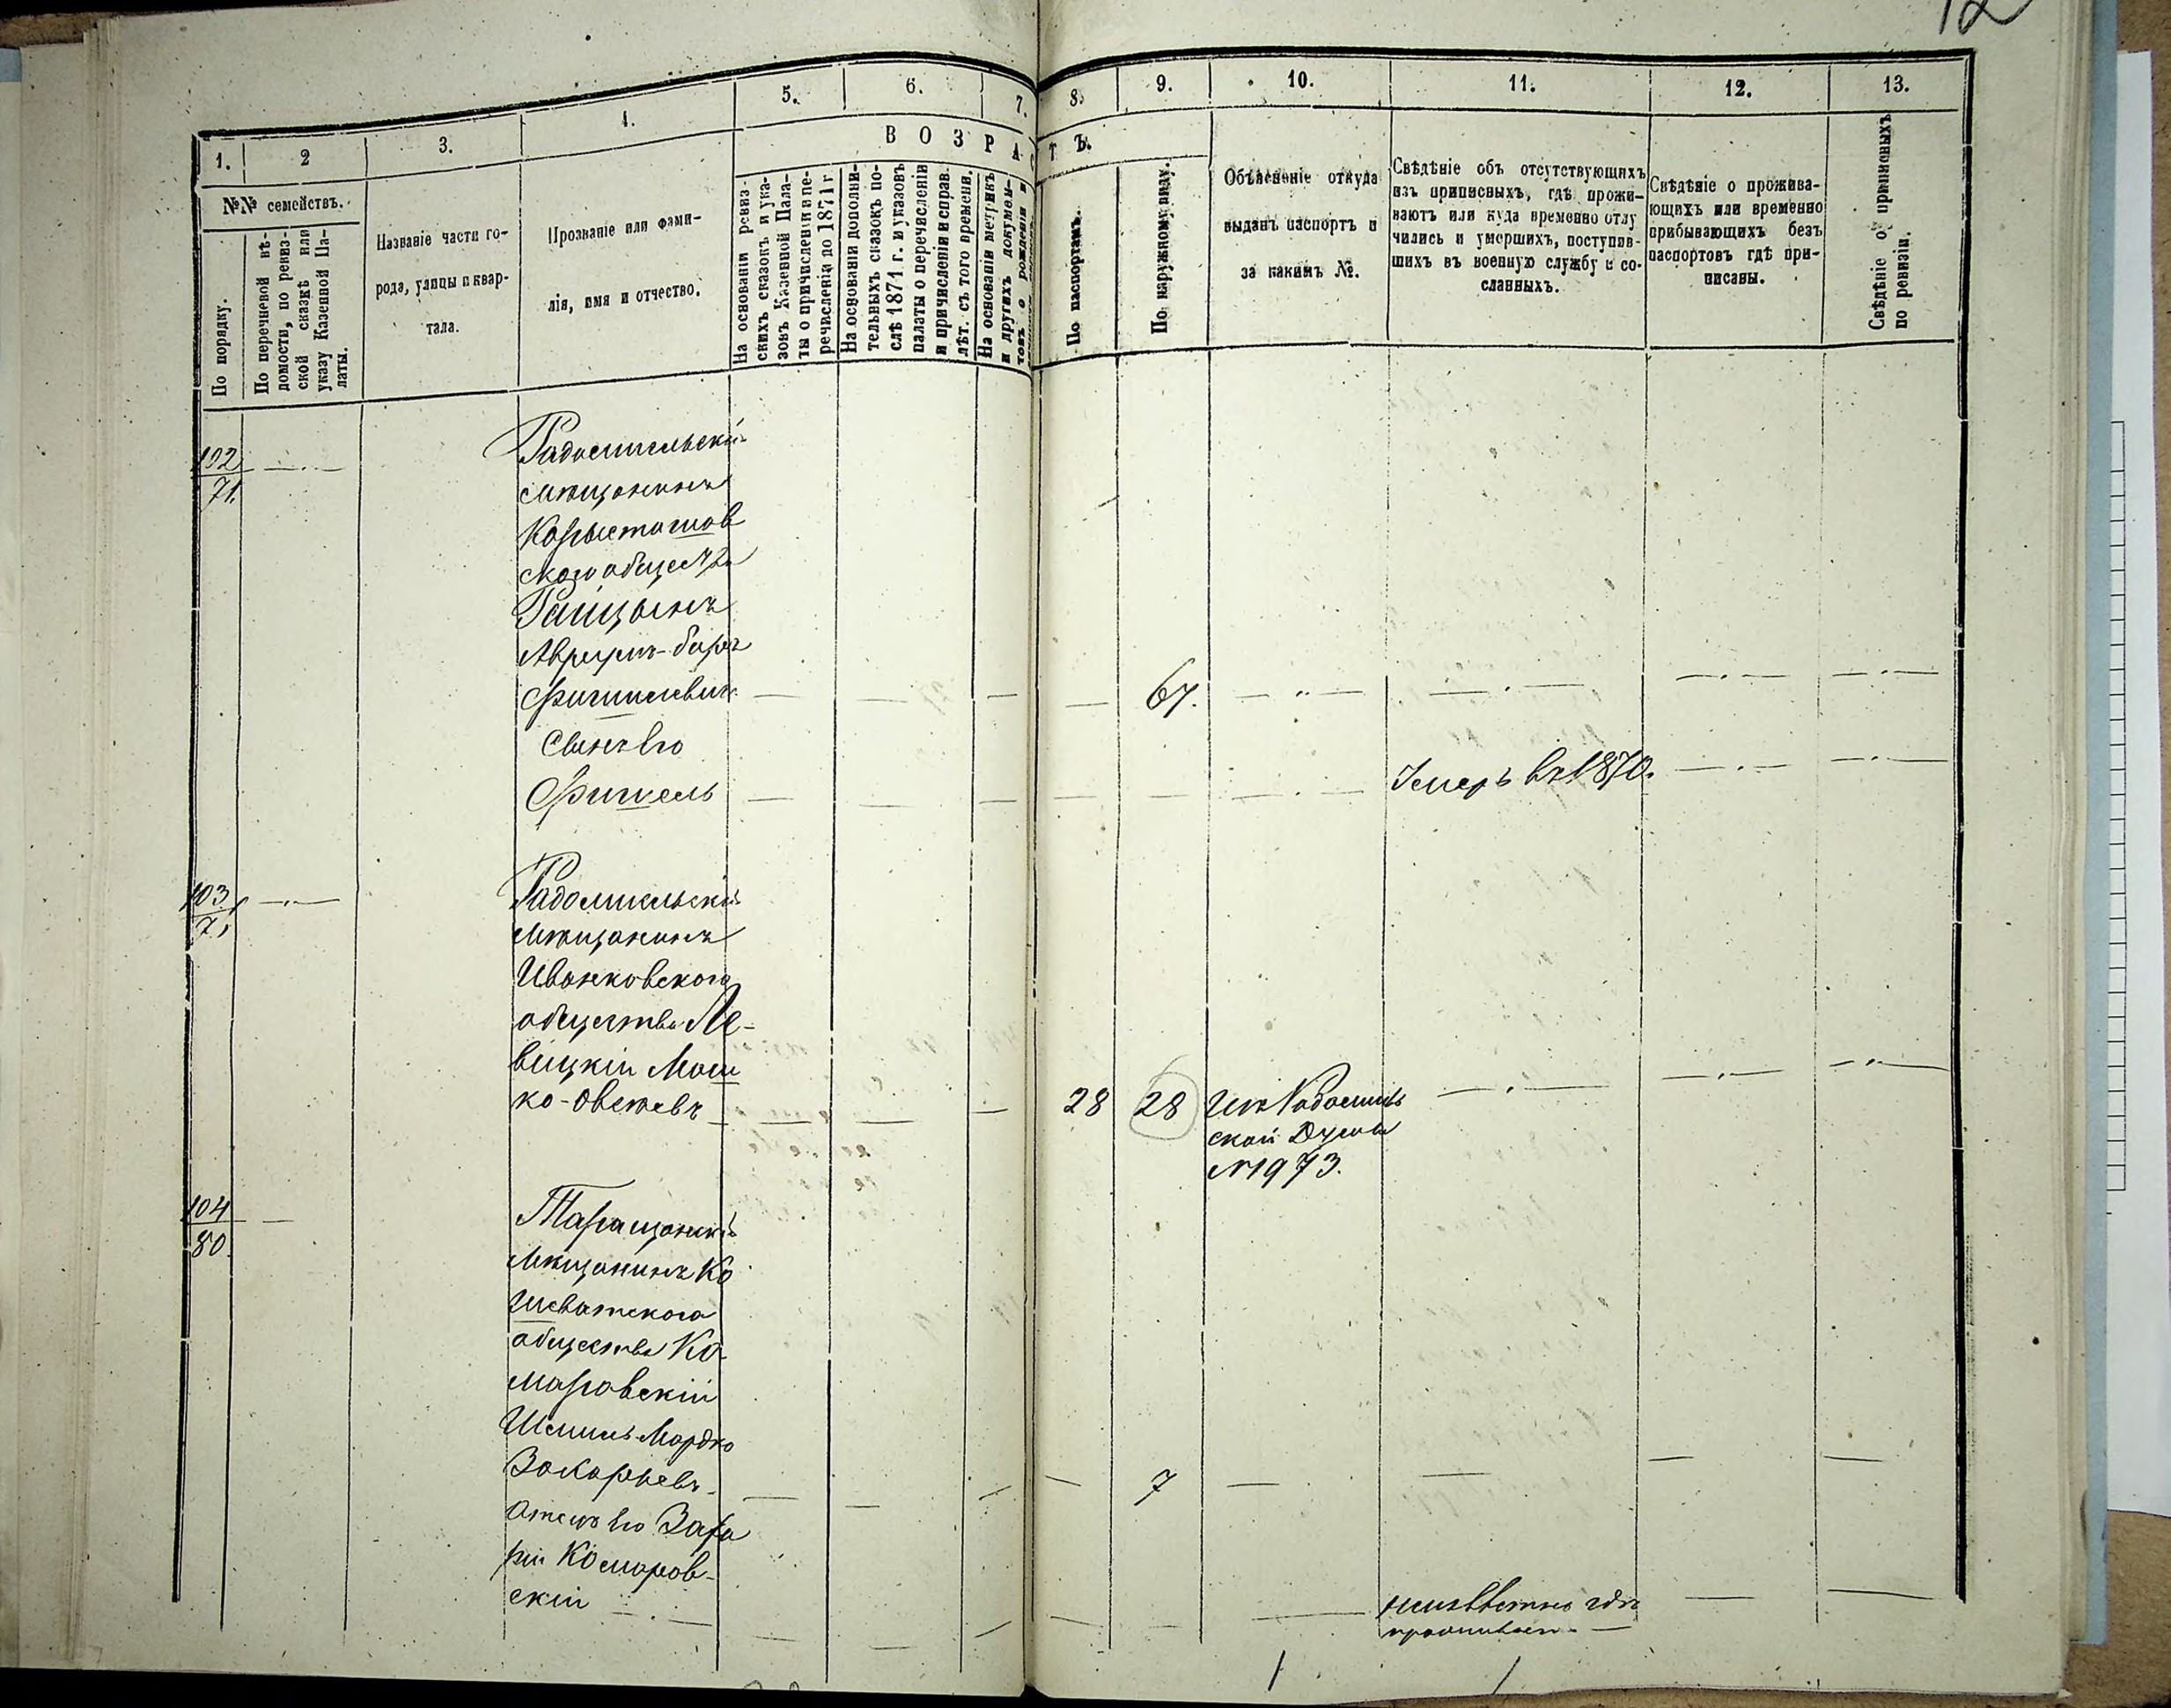 12
1.
2
3.
4.
5.
6.
7.
8.
9.
10.
11.
12.
13.
№№ семействъ.
По порядку.
По перечневой вѣ-
домости, по ревиз-
ской сказкѣ или
указу Казенной Па-
латы.
Названіе части го-
рода, улицы и квар-
тала.
Прозваніе или фами-
лія, имя и отчество.
ВОЗРАСТЪ.
На основаніи ревиз-
скихъ сказокъ и ука-
зовъ Казенной Пала-
ты о причисленіи и пе-
речисленіи до 1871 г
На основаніи дополни-
тельныхъ сказокъ по-
слѣ 1871 г. и указовъ
палаты о перечисленіи
и причисленіи и справ.
лѣт. съ того времени.
На основаніи метрикъ
и другихъ докумен-
товъ о рожденіи и
По паспортамъ.
По наружному виду.
Объясненіе откуда
выданъ паспортъ и
за какимъ №.
Свѣдѣніе объ отсутствующихъ
изъ приписныхъ, гдѣ прожи-
ваютъ или куда временно отлу
чились и умершихъ, поступив-
шихъ въ военную службу и со-
сланныхъ.
Свѣдѣніе о прожива-
ющихъ или временно
прибывающихъ безъ
паспортовъ гдѣ при-
писаны.
Свѣдѣніе о приписныхъ
по ревизіи.
102
71.
Радомысльскій
мѣщанинъ
скаго общества
Фишелевичъ — — — — 67.
Сынъ его
Фишель — — — — Умеръ въ 1870.
103
71
Радомысльскій
мѣщанинъ
Иванковскаго
общества Ле-
вицкій Мош
ко-Овсеевъ — — — 28 28 Изъ Радомысль
ской Думы
№1973.
104
80
Таращанскій
мѣщанинъ Ко
шеватскаго
общества Ко-
маровскій
Шмиль-Мордко
Закарьевъ — — — — 7
Отецъ его Заха
рій Комаров-
скій — неизвѣстно гдѣ
проживаетъ